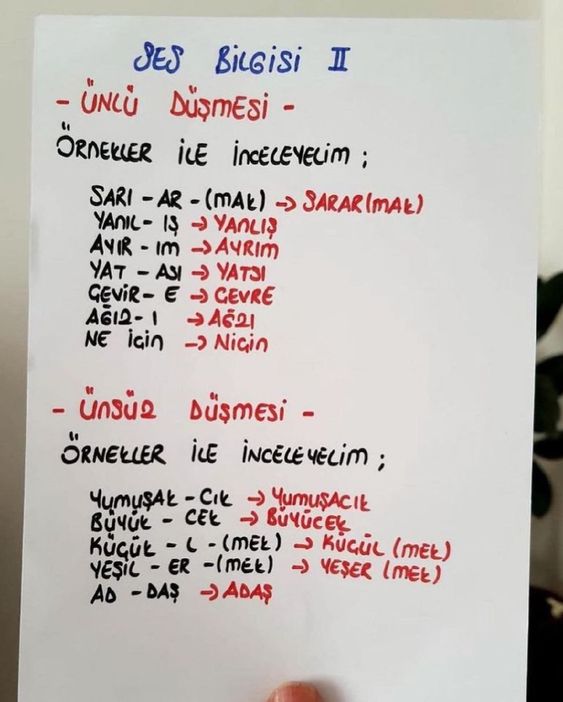 SES BİLGİSİ II
- ÜNLÜ DÜŞMESİ -
ÖRNEKLER İLE İNCELEYELİM ;
SARI - AR - (MAK) → SARAR(MAK)
YANIL - IŞ → YANLIŞ
AYIR - IM → AYRIM
YAT - ASI → YATSI
ÇEVİR - E → ÇEVRE
AĞIZ - I → AĞZI
NE İÇİN → NİÇİN
- ÜNSÜZ DÜŞMESİ -
ÖRNEKLER İLE İNCELEYELİM ;
YUMUŞAK - CIK → YUMUŞACIK
BÜYÜK - CEK → BÜYÜCEK
KÜÇÜK - L - (MEK) → KÜÇÜL (MEK)
YEŞİL - ER - (MEK) → YEŞER (MEK)
AD - DAŞ → ADAŞ